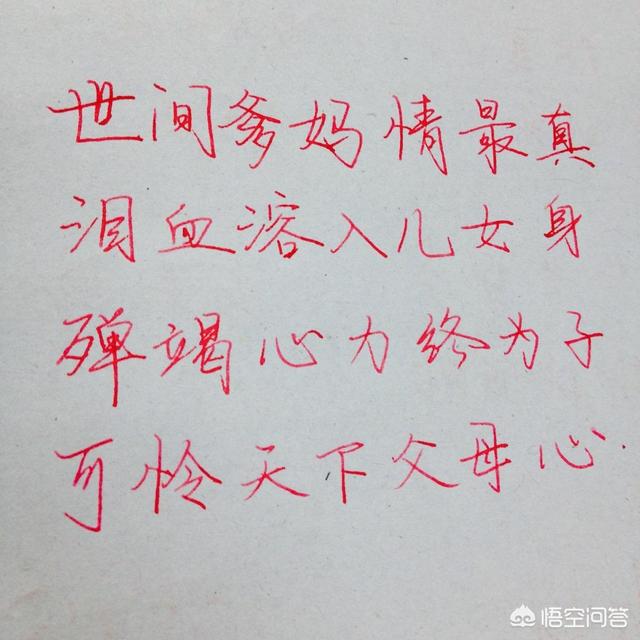 世间爹妈情最真
泪血溶入儿女身
殚竭心力终为子
可怜天下父母心.
悟空问答